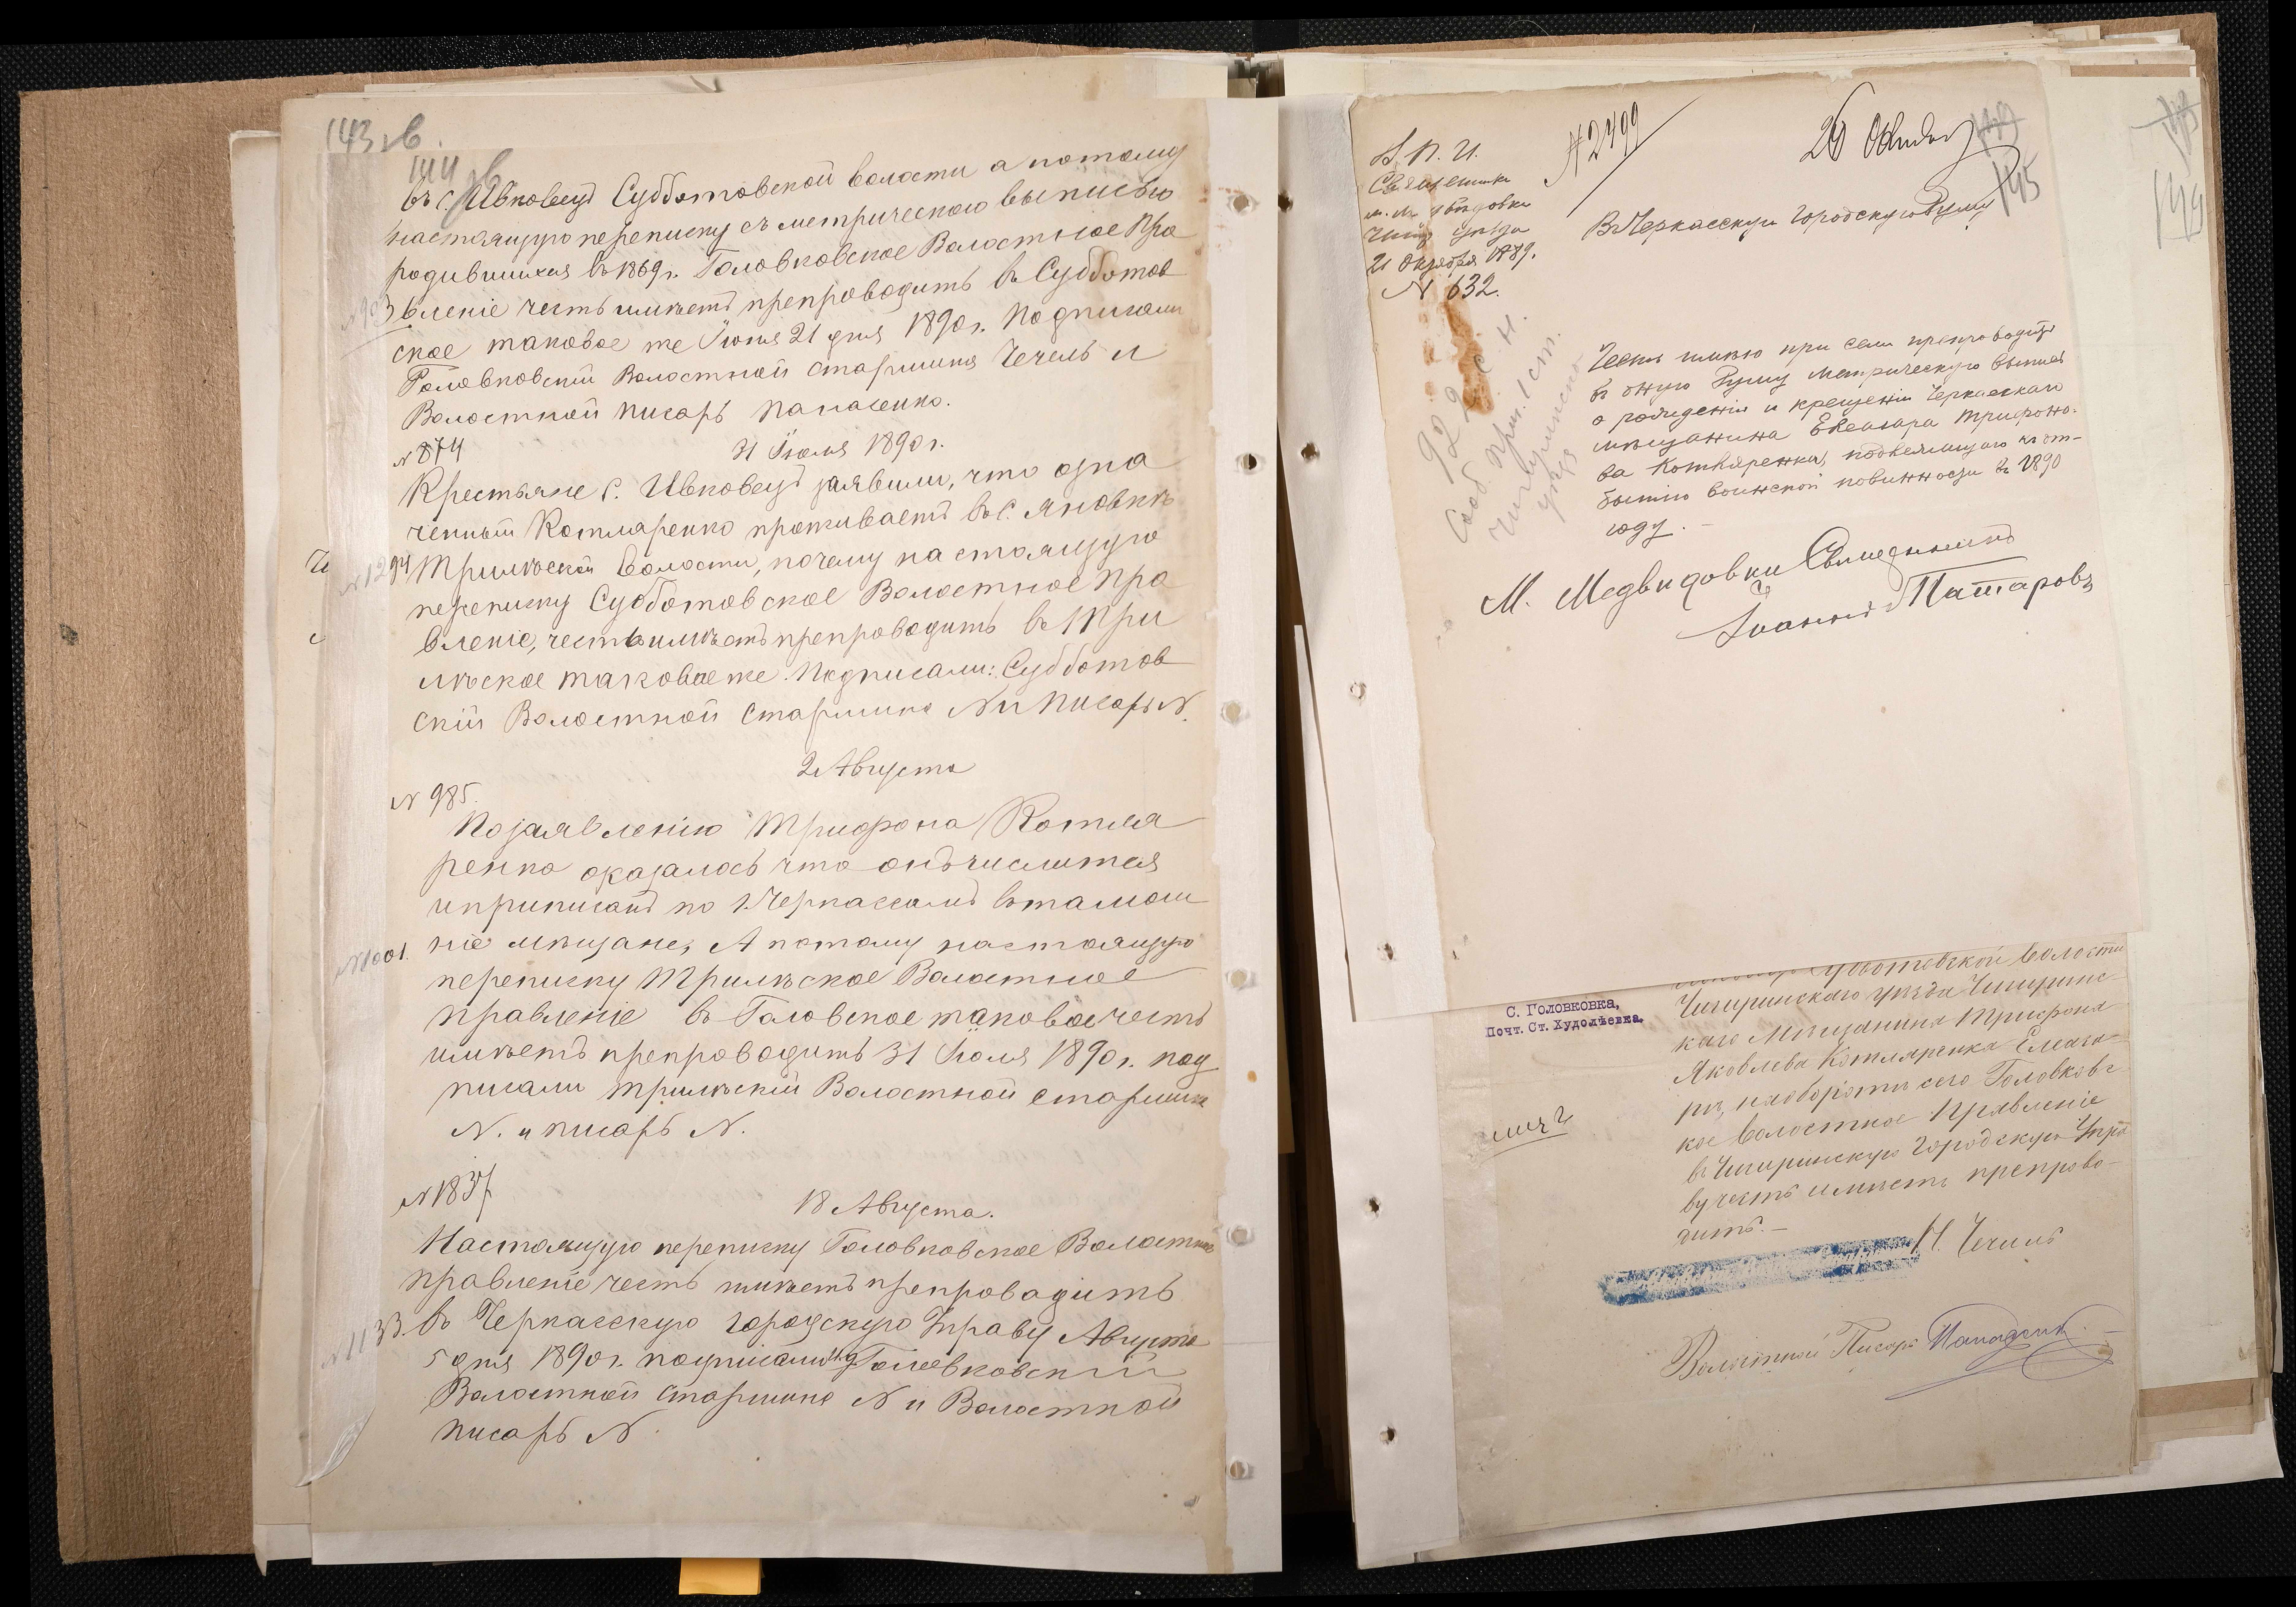 143 зв.
144 зв
въ с. Ивковецъ Субботовской волости а потому
настоящую переписку съ метрическою выписью
родившихся въ 1869 г. Головковское Волостное Пра
№ 903 вленіе честь имѣетъ препроводить въ Субботов
ское таковое же Іюня 21 дня 1890 г. Подписали
Головковскій Волостной старшина Чечель и
Волостной писарь Панасенко.
№ 874 31 Іюля 1890 г.
Крестьяне с. Ивковецъ заявили, что озна
ченный Котляренко проживаетъ въ с. Яновкѣ
№ 1294 Трилѣской волости, почему настоящую
переписку Субботовское Волостное Пра
вленіе, честь имѣетъ препроводить въ Три
лѣское таковое же. Подписали: Субботов
скій Волостной Старшина N и Писарь N.
2 Августа
№ 985.
По заявленію Трифона Котля
ренка оказалось что онъ числится
и приписанъ по г. Черкассамъ въ тамош
№ 1001. ніе мѣщане, А потому настоящую
переписку Трилѣское Волостное
правленіе въ Головское таковое честь
имѣетъ препроводить 31 Іюля 1890 г. под
писали Трилѣскій Волостной старшина
N. и писарь N.
№ 1837
18 Августа.
Настоящую переписку Головковское Волостное
правленіе честь имѣетъ препроводить
№ 1133. въ Черкасскую городскую Управу Августа
5 дня 1890 г. подписали Головковскій
Волостной старшина N и Волостной
писарь N
№ 2499
26 Октября
149
145
В. П. И.
Священника
м. Медвѣдовки
Чиг. уѣзда
21 Октября 1889.
№ 632.
Въ Черкасскую Городскую Думу
922 с. н.
Сооб. Приз. 1 ст.
Чигиринско
уѣз
Честь имѣю при семъ препроводить
въ оную Думу метрическую выпись
о рожденіи и крещеніи Черкасскаго
мѣщанина Елеазара Трифоно-
ва Котляренка, подлежащаго къ от-
бытію воинской повинности въ 1890
году. -
М. Медвѣдовки Священникъ
Іоаннъ
С. Головковка,
Почт. Ст. Худолѣевка.
Субботовской волости
Чигиринскаго уѣзда Чигиринс
каго мѣщанина Трифона
Яковлева Котляренка Елеаза-
ра, на оборотѣ сего Головковс
кое Волостное Правленіе
въ Чигиринскую Городскую Упра
ву честь имѣетъ препрово-
дить. -
И. Чечель
Волостной Писарь Панасенк